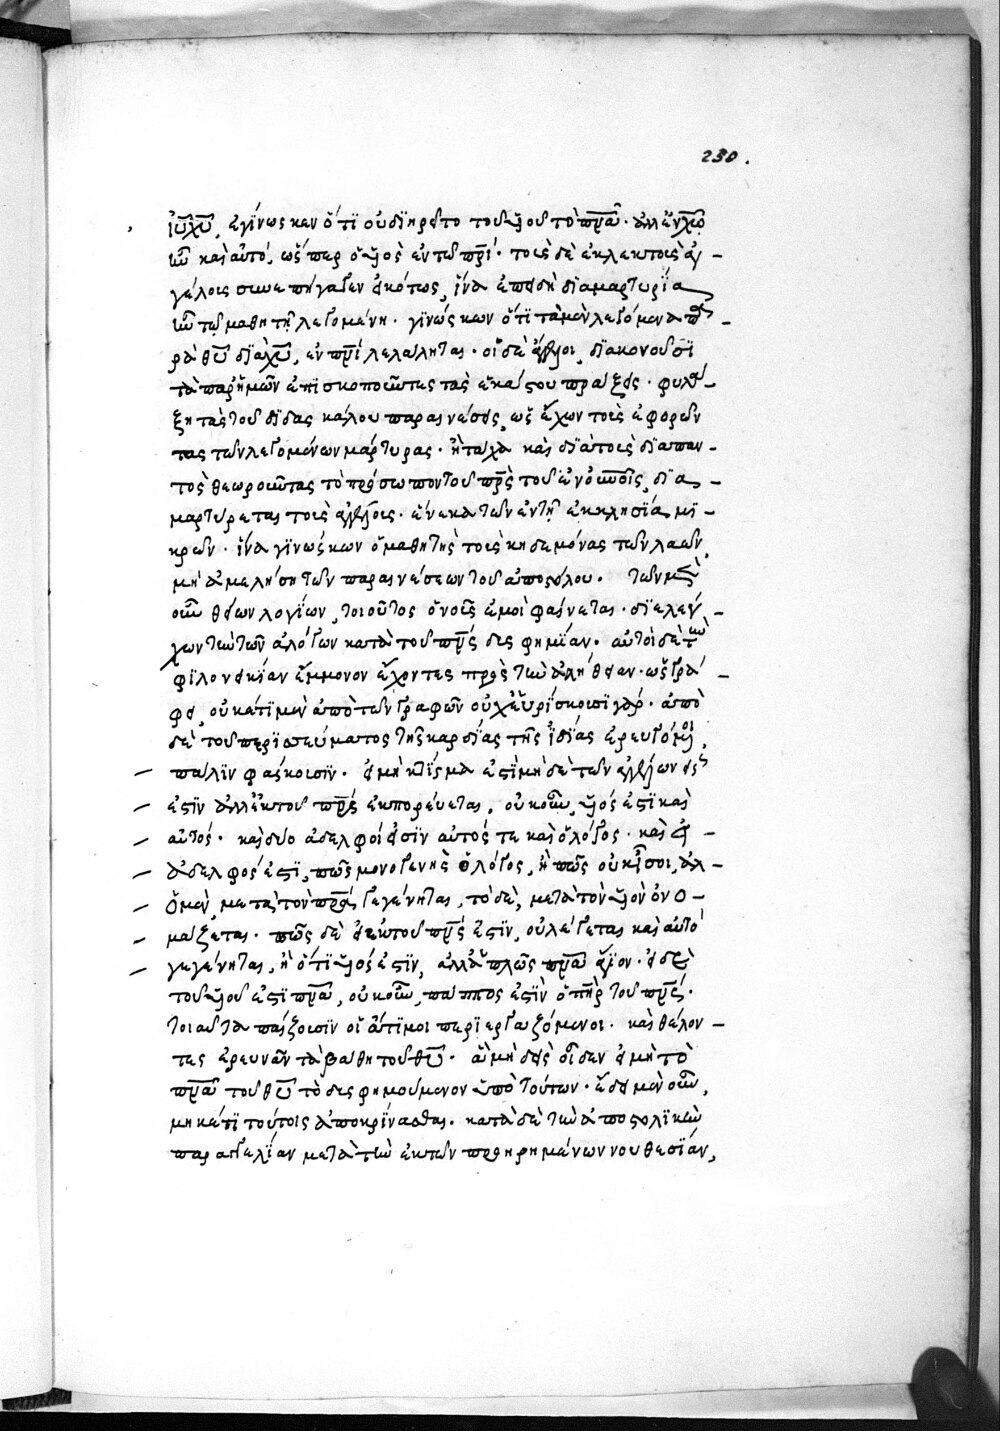 230.
ἰῦ χῦ, ἐγίνωσκεν ὅτι οὐ διῃρεῖτο τοῦ υἱοῦ τὸ πνᾶ· ἀλλ' ἐν χῶ
ἦν καὶ αὐτό, ὥσπερ ὁ υἱὸς ἐν τῶ πρί· τοῖς δὲ ἐκλεκτοῖς ἀγ-
γέλοις συνεπήγαγεν εἰκότως, ἵνα ἐπειδὴ διαμαρτυρία
ἦν τῷ μαθητῇ λεγομένη· γινώσκων ὅτι τὰ μὲν λεγόμενα πα-
ρὰ θῦ διὰ χῦ, ἐν πνί λελάληται· οἱ δὲ ἄγγελοι, διακονοῦσι
τὰ παρ' ἡμῶν ἐπισκοποῦντες τὰς ἑκάστου πράξεις· φυλά-
ξηται τοῦ διδασκάλου παραινέσεις, ὡς ἔχων τοὺς ἐφορῶν
τας τῶν λεγομένων μάρτυρας· ἢ τάχα καὶ διὰ τοὺς διαπαν-
τὸς θεωροῦντας τὸ πρόσωπον τοῦ πρς τοῦ ἐν οὐνοῖς, δια-
μαρτύρεται τοῖς ἀγγέλοις· ἕνεκα τῶν ἐν τῇ ἐκκλησία μι-
κρῶν· ἵνα γινώσκων ὁ μαθητὴς τοὺς κηδεμόνας τῶν λαῶν,
μὴ ἀμελήσῃ τῶν παραινέσεων τοῦ ἀποστόλου· τῶν μὲν
οὖν θείων λογίων, τοιοῦτος ὁ νοῦς ἐμοὶ φαίνεται· διελέγ-
χων τὴν τῶν ἀλόγων κατὰ τοῦ πνς δυσφημίαν· αὐτοὶ δὲ τὴν
φιλονεικίαν ἔμμονον ἔχοντες πρὸς τὴν ἀλήθειαν· ὡς γρά-
φει, οὐκέτι μὲν ἀπὸ τῶν γραφῶν οὐχ εὑρίσκουσι γάρ· ἀπὸ
δὲ τοῦ περισσεύματος τῆς καρδίας τῆς ἰδίας ἐρευγόμενοι,
πάλιν φάσκουσιν· εἰ μὴ κτίσμα ἐστὶ μηδὲ τῶν ἀγγέλων εἷς
ἐστὶν ἀλλ' ἐκ τοῦ πρς ἐκπορεύεται, οὐκοῦν υἱός ἐστι καὶ
αὐτός· καὶ δύο ἀδελφοί εἰσιν αὐτός τε καὶ ὁ λόγος· καὶ εἰ
ἀδελφός ἐστι, πῶς μονογενὴς ὁ λόγος, ἢ πῶς οὐκ ἴσοι, ἀλλ'
ὁ μὲν, μετὰ τὸν πρα γεγένηται, τὸ δὲ, μετὰ τὸν υἱὸν ὀνο-
μάζεται· πῶς δὲ εἰ ἐκ τοῦ πρς ἐστὶν, οὐ λέγεται καὶ αὐτὸ
γεγένηται, ἢ ὅτι υἱός ἐστιν, ἀλλ' ἁπλῶς πνᾶ ἅγιον· εἰ δὲ
τοῦ υἱοῦ ἐστὶ πνᾶ, οὐκοῦν πάππος ἐστὶν ὁ πηρ τοῦ πνς·
τοιαῦτα παίζουσιν οἱ ἄτιμοι περιεργαζόμενοι· καὶ θέλον-
τες ἐρευνᾶν τὰ βάθη τοῦ θῦ· ἃ μηδεὶς οἶδεν εἰ μὴ τὸ
πνᾶ τοῦ θῦ τὸ δυσφημούμενον ὑπὸ τούτων· ἔδει μὲν οὖν,
μηκέτι τούτοις ἀποκρίνασθαι· κατὰ δὲ τὴν ἀποστολικὴν
παραγγελίαν μετὰ τὴν ἐκ τῶν προειρημένων νουθεσίαν,